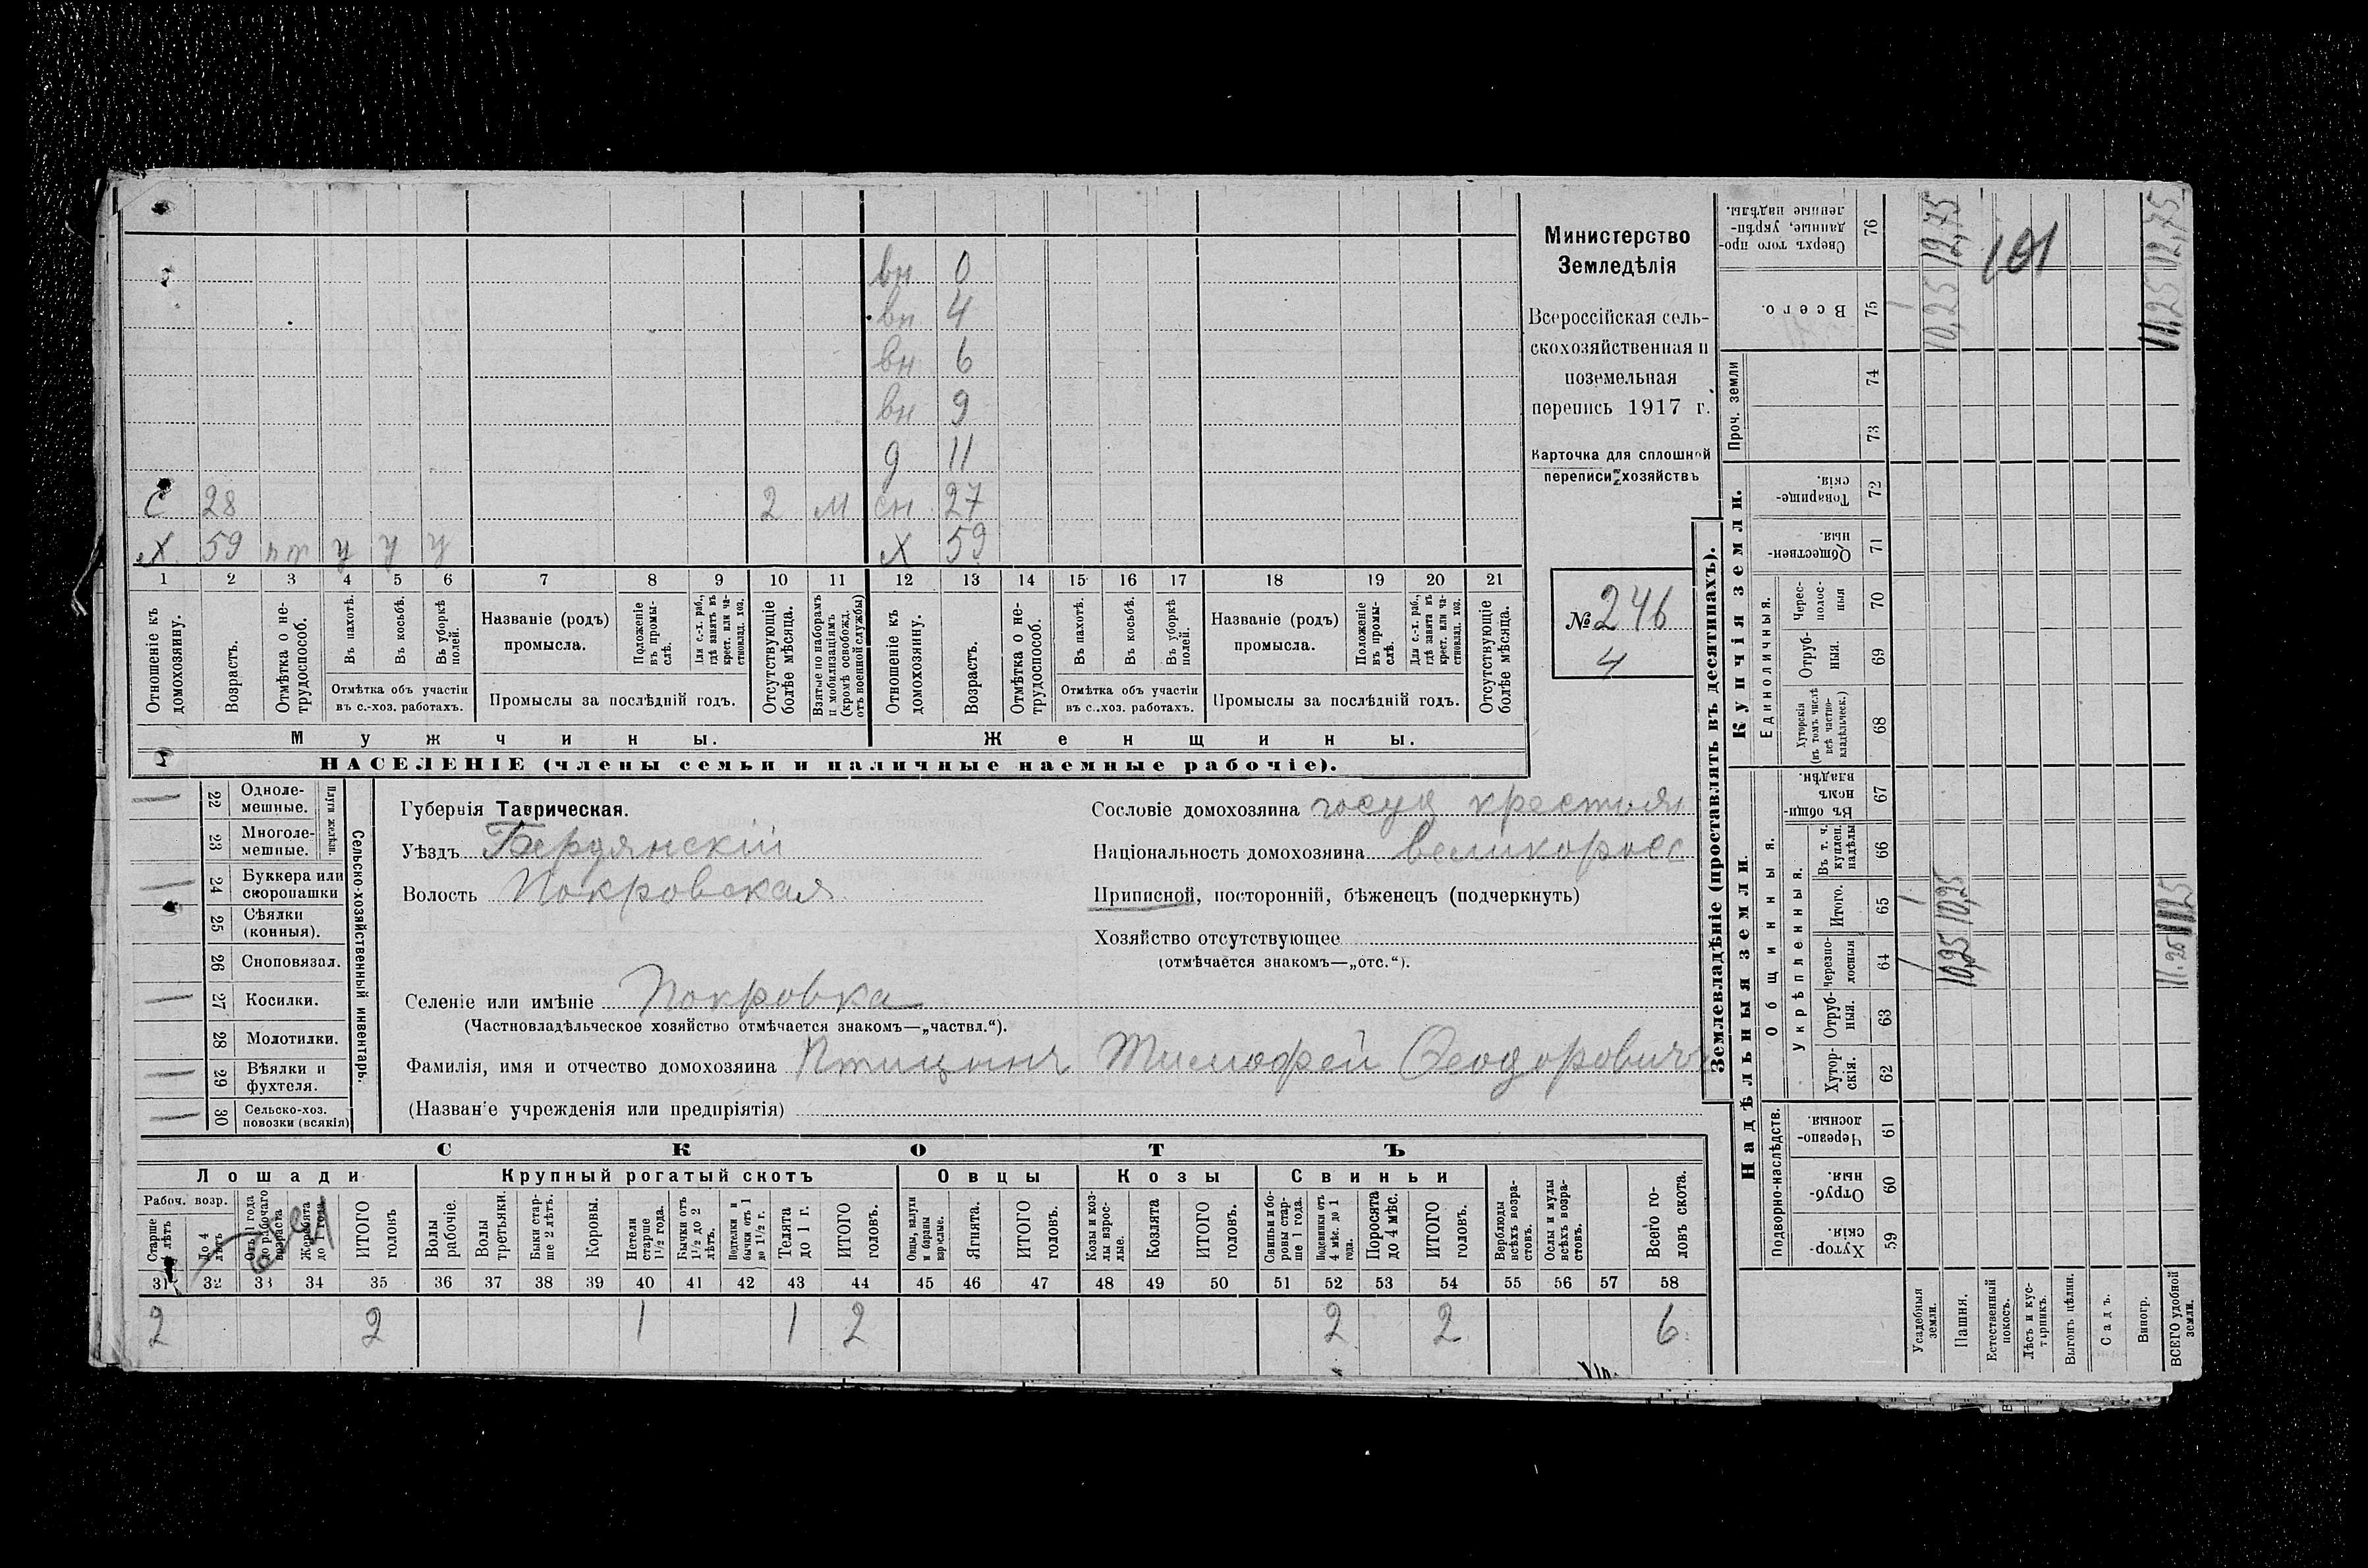 вн 0
вн 4
вн 6
вн 9
д 11
С 28 2 М сн 27
Х 59 у у у Х 59
1 2 3 4 5 6 7 8 9 10 11 12 13 14 15 16 17 18 19 20 21
Отношеніе къ домохозяину.
Возрастъ.
Отмѣтка о не-трудоспособ.
Въ пахотѣ.
Въ косьбѣ.
Въ уборкѣ полей.
Отмѣтка объ участіи
въ с.-хоз. работахъ.
Названіе (родъ)
промысла.
Положеніе въ промы-слѣ.
Для с.-х. раб., гдѣ занятъ въ крест. или ча-стновлад. хоз.
Промыслы за послѣдній годъ.
Отсутствующіе болѣе мѣсяца.
Взятые по наборамъ и мобилизаціямъ (кромѣ освобожд. отъ военной службы)
Отношеніе къ домохозяину.
Возрастъ.
Отмѣтка о не-трудоспособ.
Въ пахотѣ.
Въ косьбѣ.
Въ уборкѣ полей.
Отмѣтка объ участіи
въ с.-хоз. работахъ.
Названіе (родъ)
промысла.
Положеніе въ промы-слѣ.
Для с.-х. раб., гдѣ занята въ крест. или ча-стновлад. хоз.
Промыслы за послѣдній годъ.
Отсутствующіе болѣе мѣсяца.
Мужчины. Женщины.
НАСЕЛЕНІЕ (члены семьи и наличные наемные рабочіе).
Министерство
Земледѣлія
Всероссійская сель-
скохозяйственная и
поземельная
перепись 1917 г.
Карточка для сплошной
переписи хозяйствъ
№ 246
4
22 Одноле-мешные.
23 Многоле-мешные.
Плуги желѣзн.
24 Буккера или скоропашки
25 Сѣялки (конныя).
26 Сноповязал.
27 Косилки.
28 Молотилки.
29 Вѣялки и фухтеля.
30 Сельско-хоз. повозки (всякія)
Сельско-хозяйственный инвентарь.
Губернія Таврическая.
Уѣздъ Бердянскій
Волость Покровская
Сословіе домохозяина госуд крестьян
Національность домохозяина великоросс
Приписной, посторонній, бѣженецъ (подчеркнуть)
Хозяйство отсутствующее
(отмѣчается знакомъ—„отс.“).
Селеніе или имѣніе Покровка
(Частновладѣльческое хозяйство отмѣчается знакомъ—„частвл.“).
Фамилія, имя и отчество домохозяина Птицынъ Тимофей Феодоровичъ
(Названіе учрежденія или предпріятія)
СКОТЪ
Лошади Крупный рогатый скотъ Овцы Козы Свиньи
Рабоч. возр.
Старше 4 лѣтъ
До 4 лѣтъ
Отъ 1 года до рабочаго возраста
Жеребята до 1 года.
ИТОГО головъ
Волы рабочіе.
Волы третьяки.
Быки стар-ше 2 лѣтъ.
Коровы.
Нетели старше 1 1/2 года.
Бычки отъ 1 1/2 до 2 лѣтъ.
Подтелки и бычки отъ 1 до 1 1/2 г.
Телята до 1 г.
ИТОГО головъ.
Овцы, валухи и бараны взрослые.
Ягнята.
ИТОГО головъ.
Козы и коз-лы взрос-лые.
Козлята
ИТОГО головъ.
Свиньи и бо-ровы стар-ше 1 года.
Подсвинки отъ 4 мѣс. до 1 года.
Поросята до 4 мѣс.
ИТОГО головъ.
Верблюды всѣхъ возра-стовъ.
Ослы и мулы всѣхъ возра-стовъ.
Всего го-ловъ скота.
31 32 33 34 35 36 37 38 39 40 41 42 43 44 45 46 47 48 49 50 51 52 53 54 55 56 57 58
2 2 1 1 2 2 2 6
Землевладѣніе (проставлять въ десятинахъ).
Надѣльныя земли. Купчія земли.
Подворно-наслѣдств.
Общинныя.
Укрѣпленныя.
Единоличныя.
Проч. земли
Хутор-скія. 59
Отруб-ныя. 60
Черезпо-лосныя 61
Хутор-скія. 62
Отруб-ныя. 63
Черезпо-лосныя 64
Итого. 65
Въ т. ч. куплен. надѣлы 66
Въ общи-номъ владѣн. 67
Хуторскія (въ томъ числѣ всѣ частно-владѣльческ.) 68
Отруб-ныя. 69
Черес-полос-ныя 70
Обществен-ныя. 71
Товарище-скія. 72
73
74
Всего. 75
Сверхъ того про-данные, укрѣп-ленные надѣлы. 76
Усадебныя земли. 1 1 1
Пашня. 10,25 10,25 10,25 12,75
Естественный покосъ.
Лѣсъ и кус-тарникъ.
Выгонъ цѣлин.
Садъ.
Виногр.
ВСЕГО удобной земли. 11.25 11,25 11,25 12,75
101